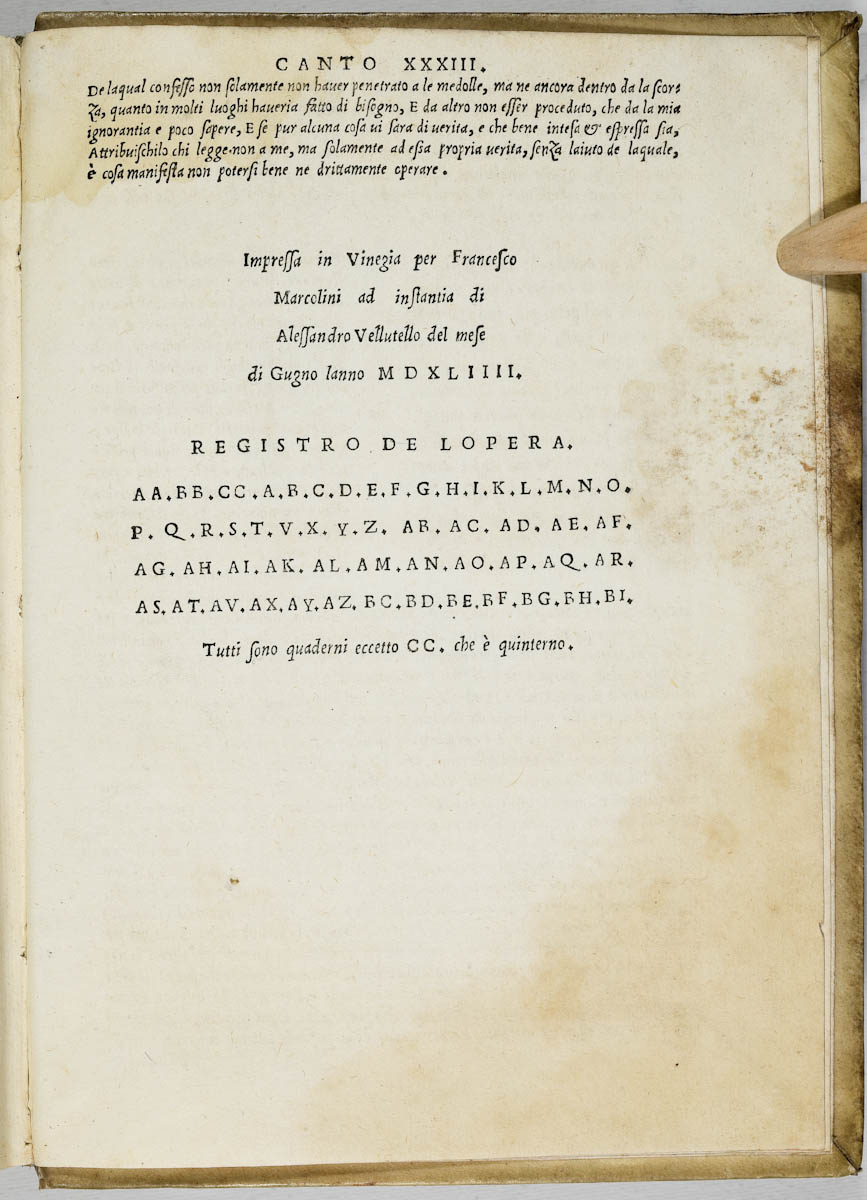 CANTO XXXIII.
De laqual confesso non solamente non haver penetrato a le medolle, ma ne ancora dentro da la scor:
za, quanto in molti luoghi haveria fatto di bisogno, E da altro non esser proceduto, che da la mia
ignorantia e poco sapere, E se pur alcuna cosa ui sara di uerita, e che bene intesa & espressa sia,
Attribuischilo chi legge non a me, ma solamente ad essa propria uerita, senza laiuto de laquale,
è cosa manifesta non potersi bene ne drittamente operare.
Impressa in Vinegia per Francesco
Marcolini ad instantia di
Alessandro Vellutello del mese
di Gugno lanno MDXLIIII.
REGISTRO DE LOPERA.
AA.BB.CC.A.B.C.D.E.F.G.H.I.K.L.M.N.O.
P.Q.R.S.T.V.X.Y.Z. AB. AC. AD. AE. AF.
AG. AH. AI. AK. AL. AM. AN. AO. AP. AQ. AR.
AS. AT. AV. AX. AY. AZ. BC. BD. BE. BF. BG. BH. BI.
Tutti sono quaderni eccetto CC. che è quinterno.